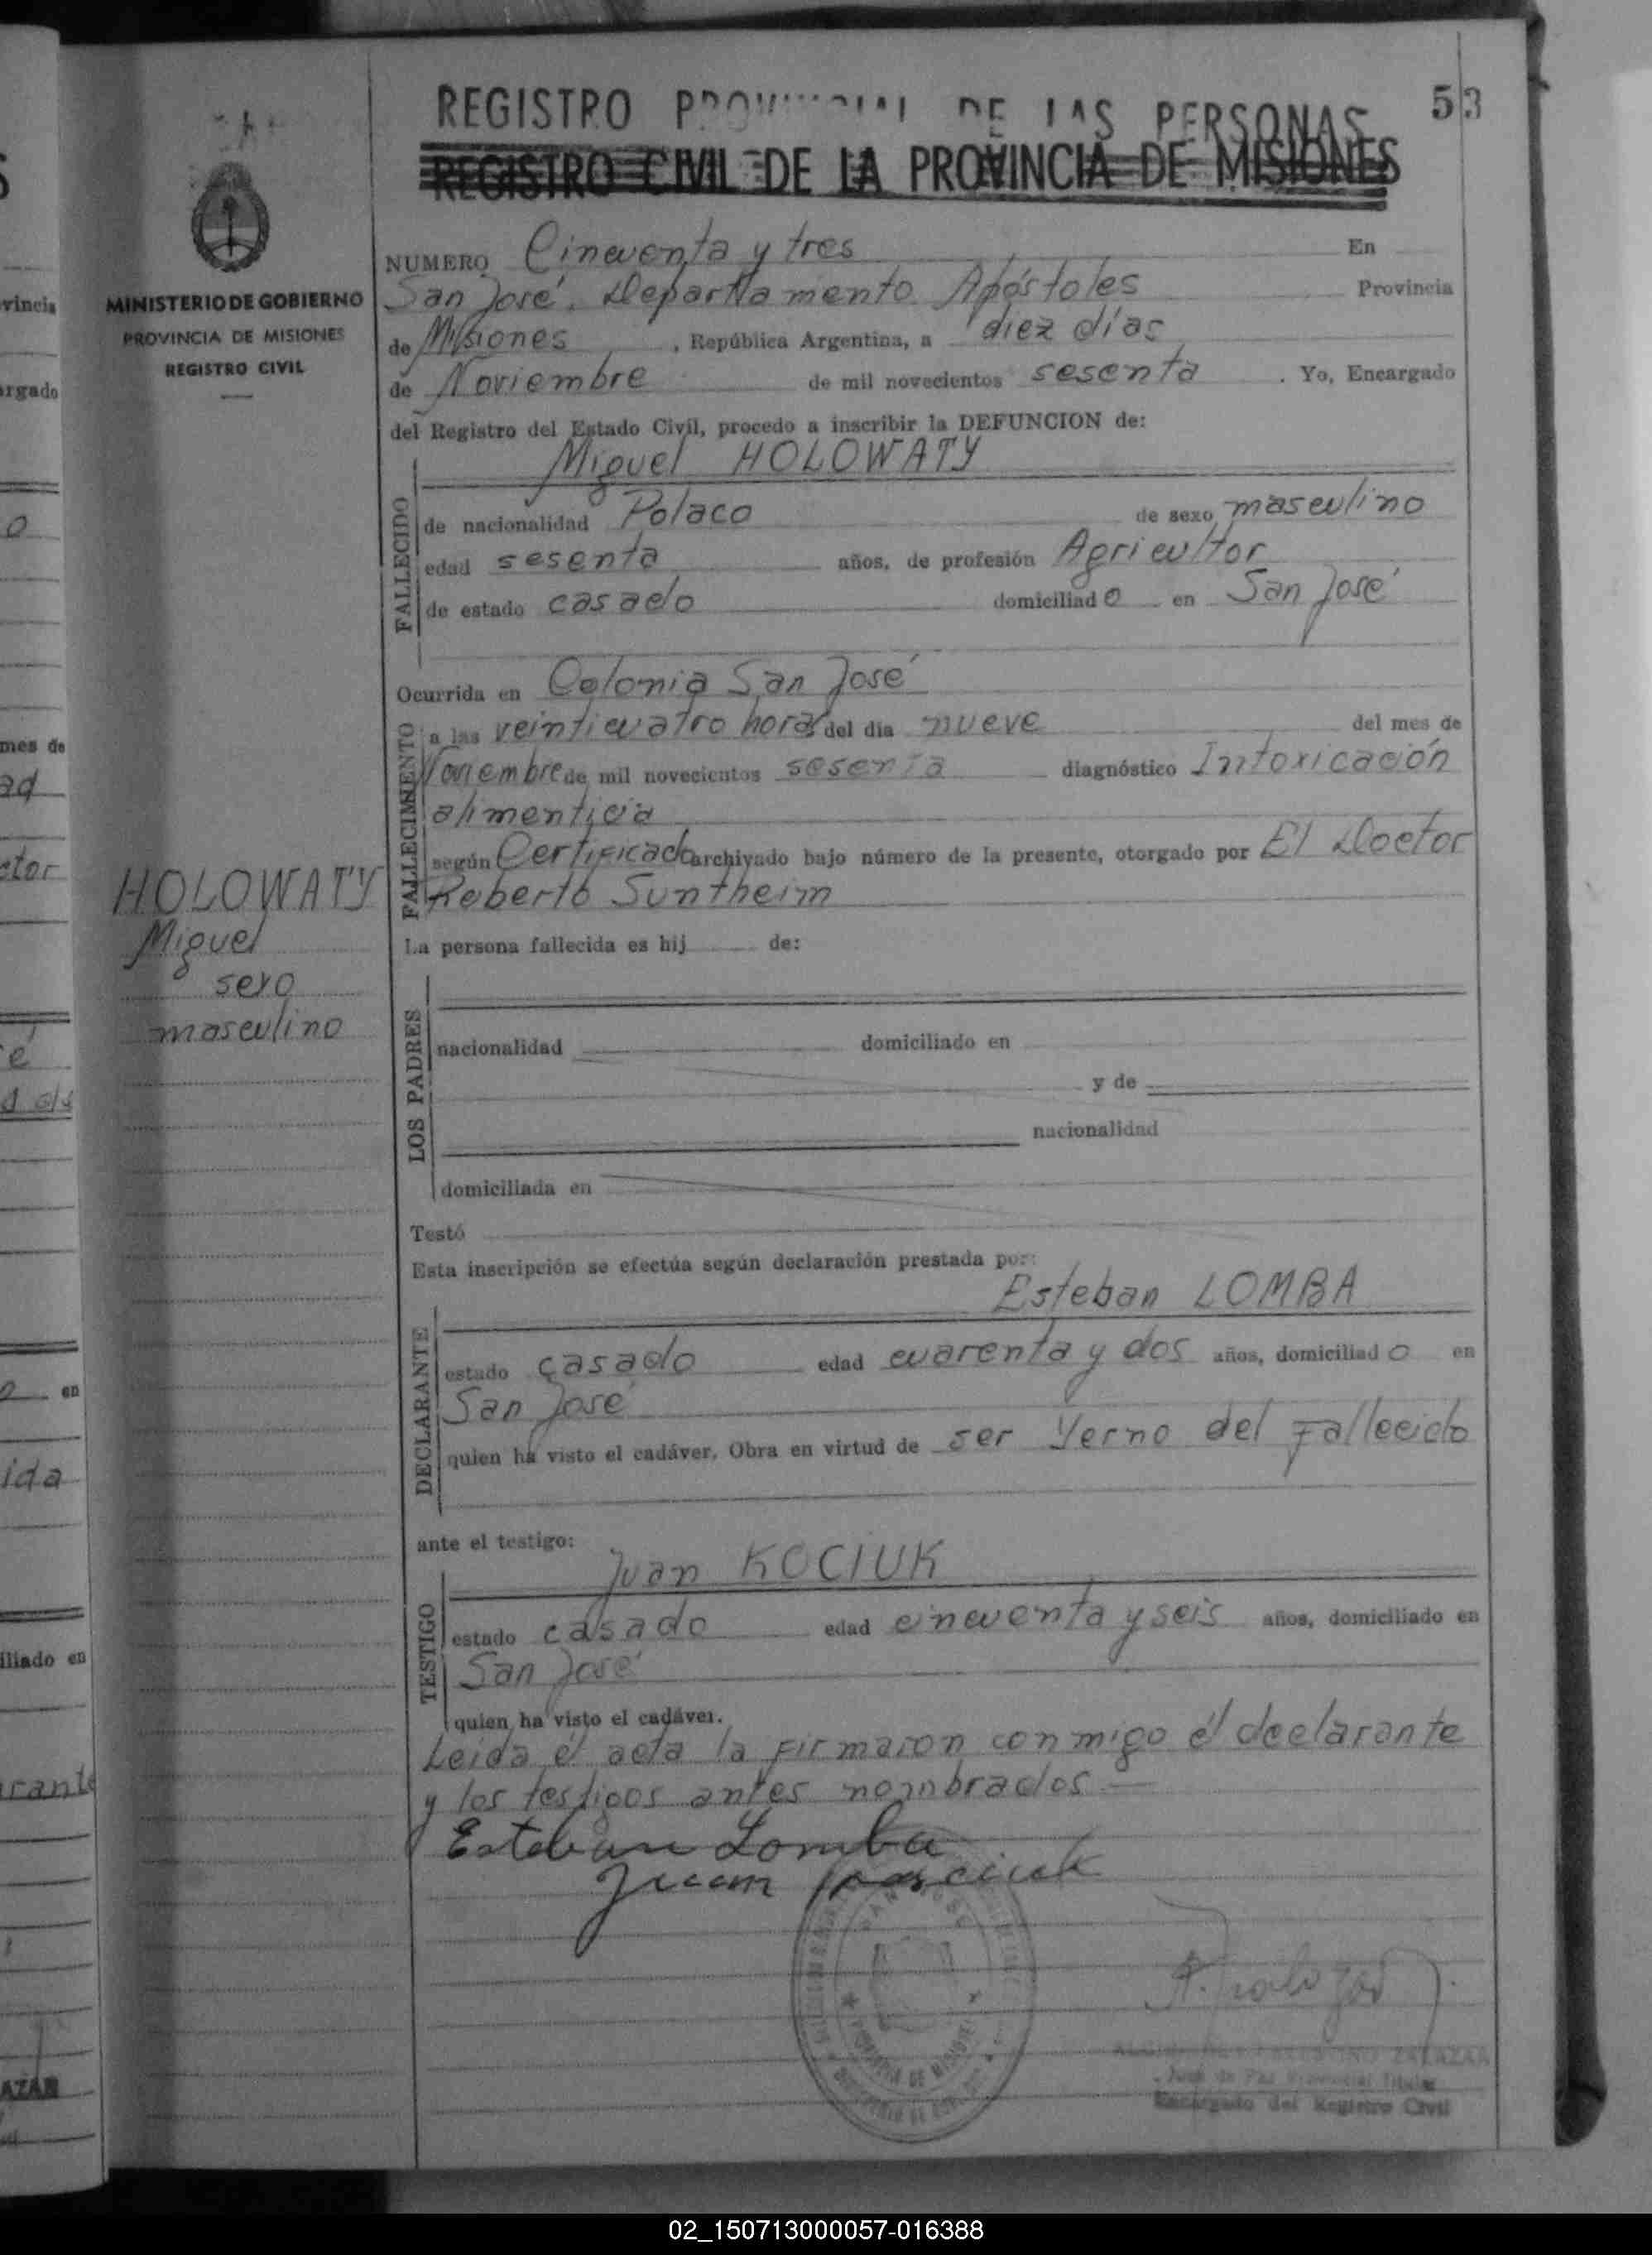 53
REGISTRO PROVINCIAL DE LAS PERSONAS
REGISTRO CIVIL DE LA PROVINCIA DE MISIONES
MINISTERIO DE GOBIERNO
PROVINCIA DE MISIONES
REGISTRO CIVIL
NUMERO Cincuenta y tres En
San José. Departamento Apóstoles Provincia
de Misiones, República Argentina, a diez días
de Noviembre de mil novecientos sesenta. Yo, Encargado
del Registro del Estado Civil, procedo a inscribir la DEFUNCION de:
Miguel HOLOWATY
FALLECIDO
de nacionalidad Polaco de sexo masculino
edad sesenta años, de profesión Agricultor
de estado casado domiciliado en San José
Ocurrida en Colonia San José
FALLECIMIENTO
a las veinticuatro horas del dia nueve del mes de
Noviembre de mil novecientos sesenta diagnóstico Intoxicación
alimenticia
según Certificado archivado bajo número de la presente, otorgado por El Doctor
Roberto Suntheim
HOLOWATY
Miguel
sexo
masculino
La persona fallecida es hij de:
LOS PADRES
nacionalidad domiciliado en
y de
nacionalidad
domiciliada en
Testó
Esta inscripción se efectúa según declaración prestada por:
Esteban LOMBA
DECLARANTE
estado casado edad cuarenta y dos años, domiciliado en
San José
quien ha visto el cadáver. Obra en virtud de ser Yerno del Fallecido
ante el testigo:
Juan KOCIUK
TESTIGO
estado casado edad cincuenta y seis años, domiciliado en
San José
quien ha visto el cadáver.
Leida el acta la firmaron conmigo el declarante
y los testigos antes nombrados
Esteban Lomba
Juan Kociuk
ZALAZAR
Juez de Paz Provincial Titular
Encargado del Registro Civil
02_150713000057-016388